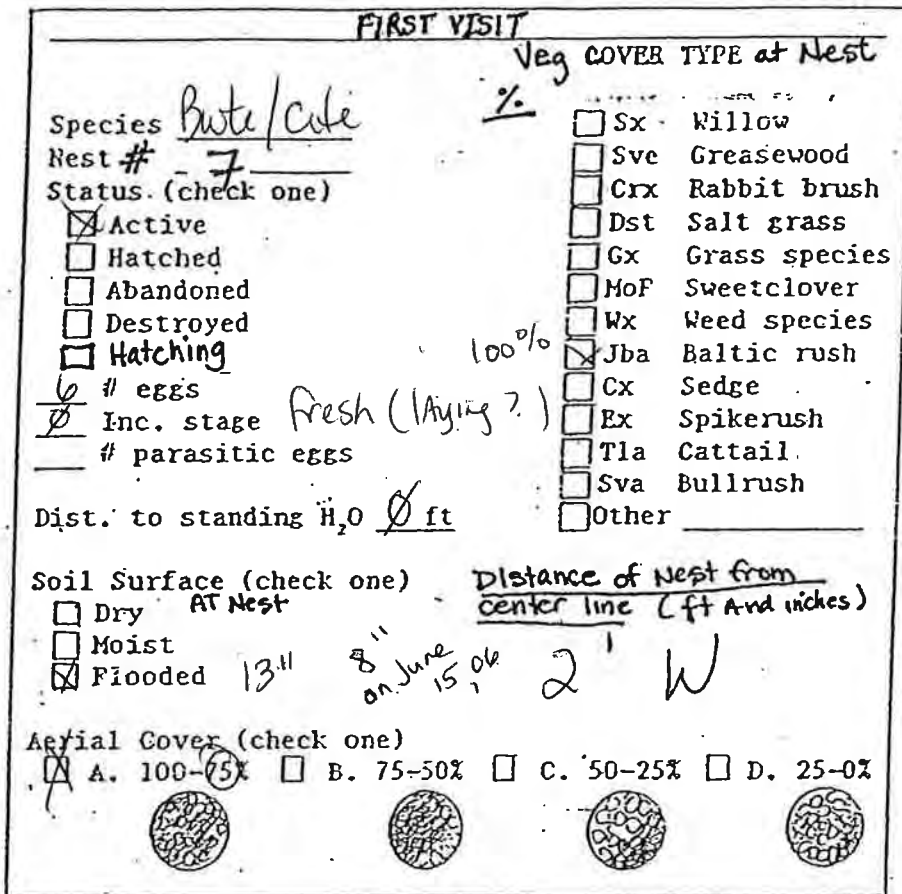 FIRST VISIT
Veg COVER TYPE at Nest
%
Species Bwte/Cite
Nest # 7
Status (check one)
Active
Hatched
Abandoned
Destroyed
Hatching
6 # eggs
0 Inc. stage fresh (laying?)
# parasitic eggs
Dist. to standing H₂O 0 ft
Sx Willow
Sve Greasewood
Crx Rabbit brush
Dst Salt grass
Gx Grass species
MoF Sweetclover
Wx Weed species
100% Jba Baltic rush
Cx Sedge
Ex Spikerush
Tla Cattail
Sva Bullrush
Other
Soil Surface (check one)
AT Nest
Dry
Moist
Flooded 13" 8" on June 15, 06
Distance of Nest from
center line (ft And inches)
2' W
Aerial Cover (check one)
A. 100-75% B. 75-50% C. 50-25% D. 25-0%